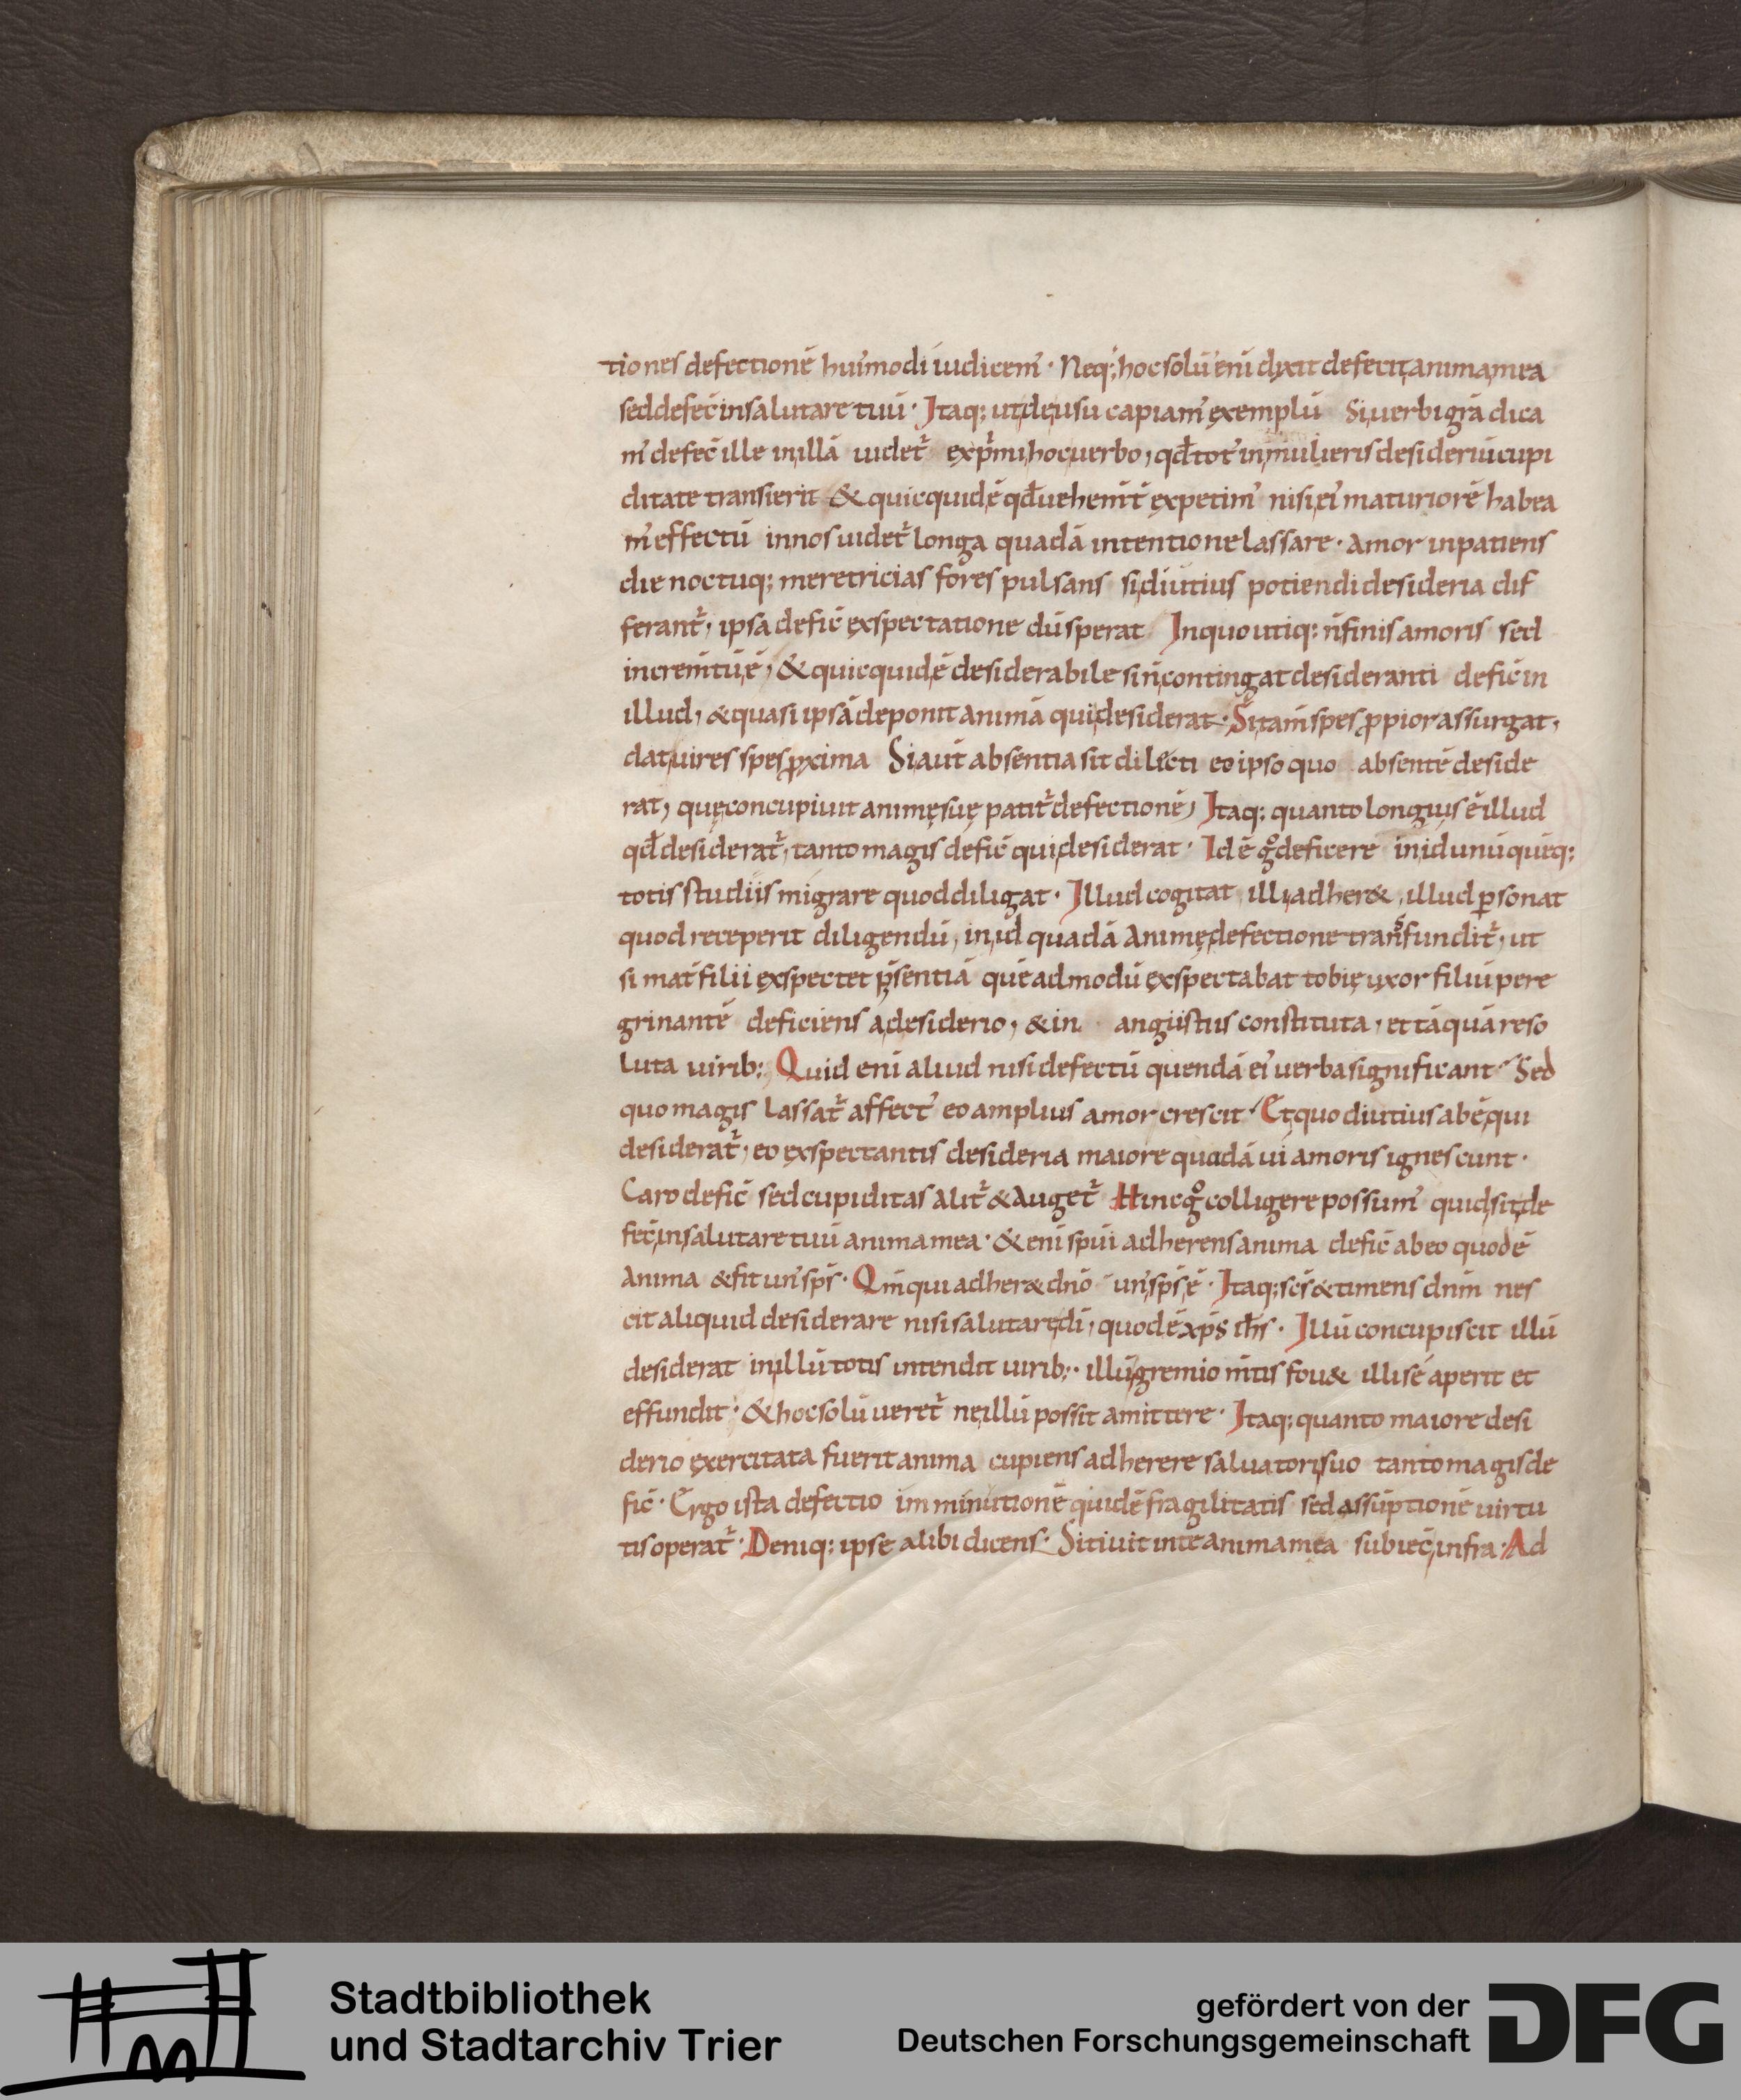 tiones defectionē hui᾽modi iudicem᾽. Neq; hoc solū enī dixit defecit anima mea
sed defeč in salutare tuū. Itaq; ut de usu capiam᾽ exemplū Si uerbi grā dica
m᾽ defeč ille in illā uidet᷑ exp᷑mi hoc uerbo, qđ tot᾽ in mulieris desideriū cupi
ditate transierit & quicquid ē qđ uehem̄t̄ expetim᾽ nisi ei᾽ maturiorē habea
m᾽ effectū in nos uidet᷑ longa quadā intentione lassare. Amor inpatiens
die noctuq; meretricias fores pulsans si diutius potiendi desideria dif
ferant᷑, ipsa defič exspectatione dū sperat In quo utiq; n̄ finis amoris sed
increm̄tū ē, & quicquid ē desiderabile si n̄ contingat desideranti defič in
illud, & quasi ipsā deponit animā qui desiderat. Si tam̄ spes ꝓpior assurgat,
dat uires spes ꝓxima Si aut̄ absentia sit dilecti eo ipso quo absentē deside
rat, quę concupiuit animę suę patit᷑ defectionē, Itaq; quanto longius ē illud
qđ desiderat᷑, tanto magis defič qui desiderat. Id ē gͦ deficere in id unūquēq;
totis studiis migrare quod diligat. Illud cogitat illi adher& illud ꝑsonat
quod receperit diligendū, in id quadā animę defectione transfundit᷑, ut
si mat̄ filii exspectet p̄sentiā quēadmodū exspectabat tobię uxor filiū pere
grinantē deficiens a desiderio, & in angustiis constituta, et tāquā reso
luta uirib; Quid enī aliud nisi defectū quendā ei᾽ uerba significant? Sed
quo magis lassat᷑ affect᾽ eo amplius amor crescit. Et quo diutius abē qui
desiderat᷑, eo exspectantis desideria maiore quadā ui amoris ignescunt.
Caro defič sed cupiditas alit᷑ & auget᷑ Hinc gͦ colligere possum᾽ quid sit de
feč in salutare tuū anima mea. & enī spūi adherens anima defič ab eo quod ē
anima & fit un᾽ sps̄. Qm̄ qui adher& dn̄o un᾽ sps̄ ē. Itaq; scs̄ & timens dnm̄ nes
cit aliquid desiderare nisi salutare dī, quod ē xp̄s ih̄s. Illū concupiscit illū
desiderat in illū totis intendit uirib;. illū gremio m̄tis fou& illi se aperit et
effundit. & hoc solū ueret᷑ ne illū possit amittere. Itaq; quanto maiore desi
derio exercitata fuerit anima cupiens adherere saluatori suo tanto magis de
fič. Ergo ista defectio imminutionē quidē fragilitatis sed assūptionē uirtu
tis operat᷑. Deniq; ipse alibi dicens. Sitiuit in te anima mea subieč infra. Ad
Stadtbibliothek
und Stadtarchiv Trier
gefördert von der
Deutschen Forschungsgemeinschaft
DFG